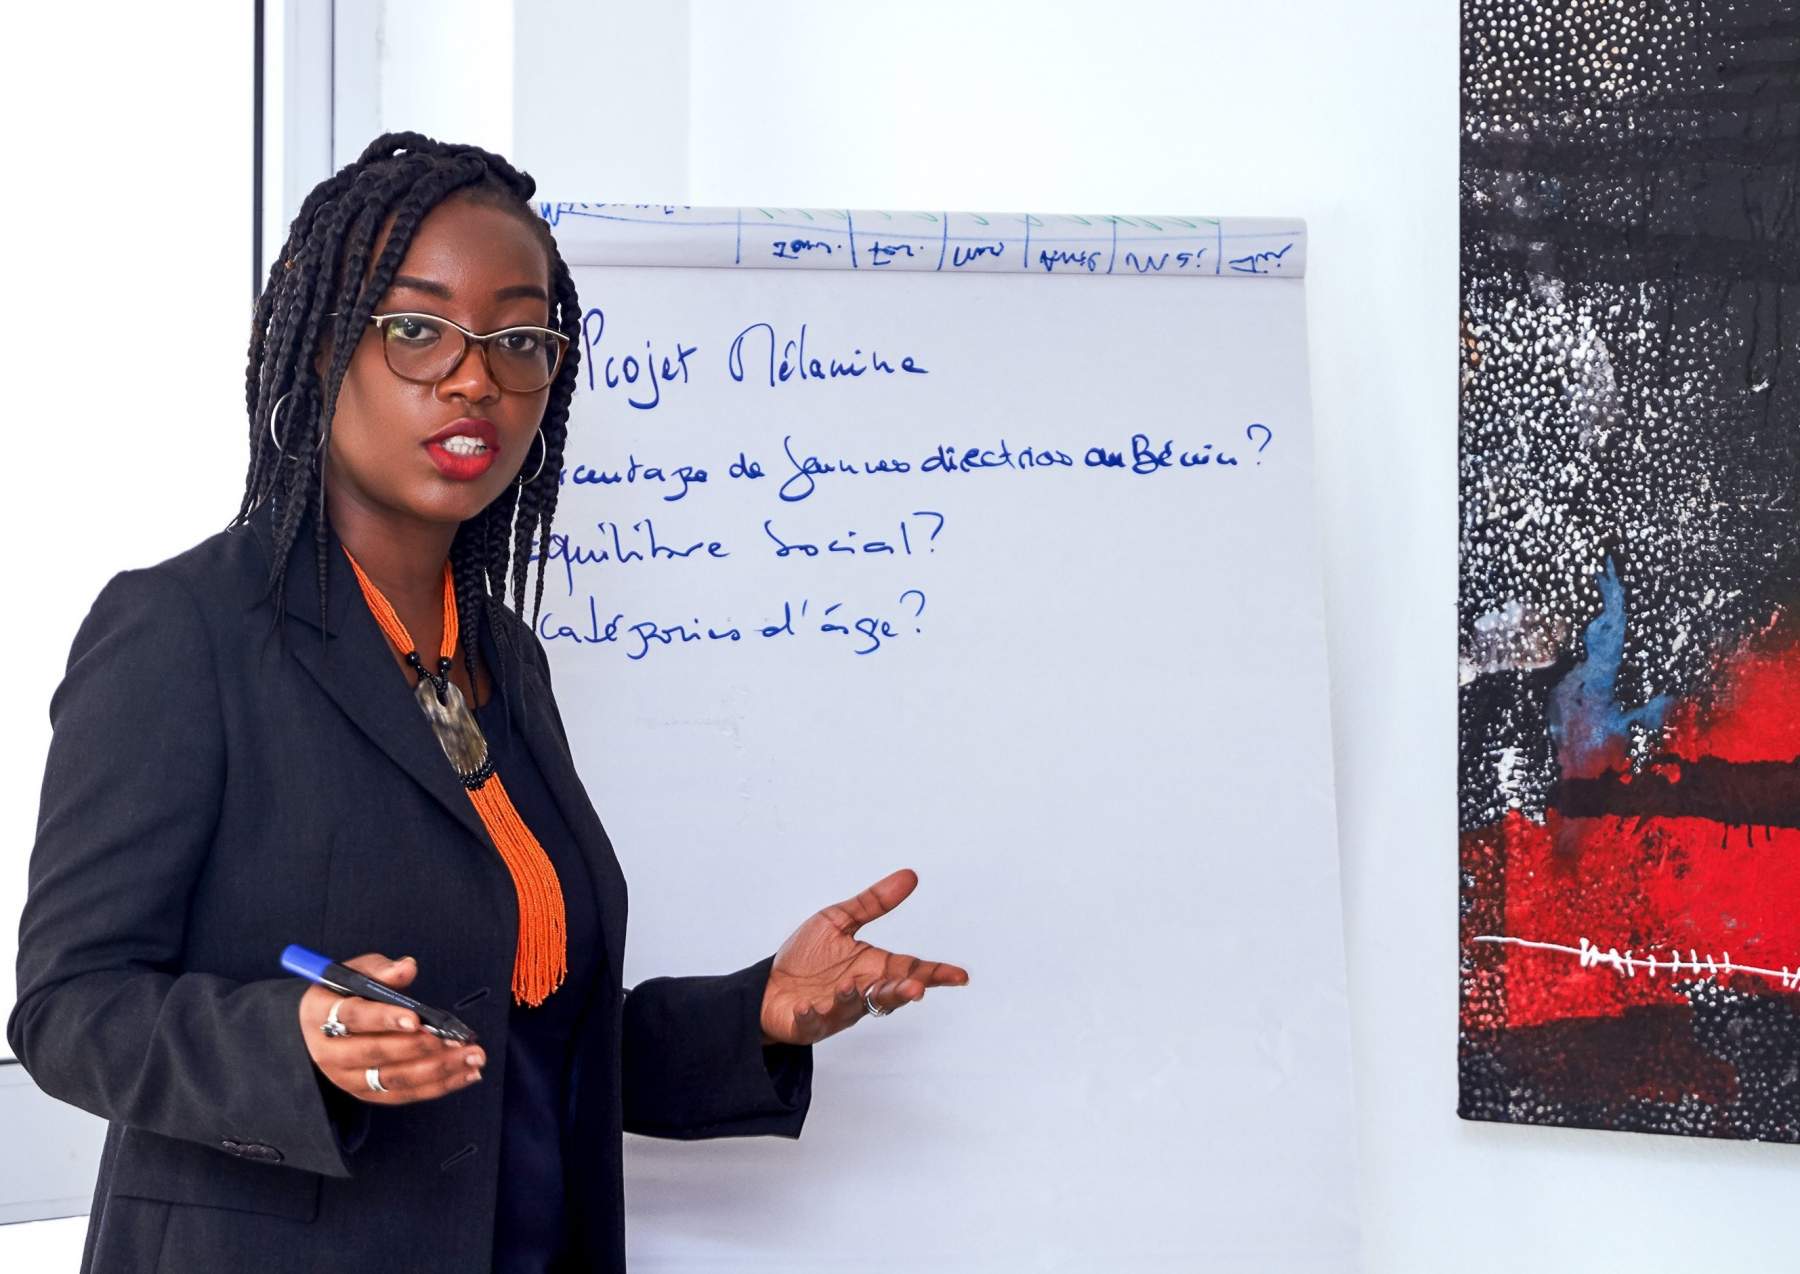 Projet Mélamine
rcentage de femmes directrices au Bénin?
équilibre Social?
catégories d'âge?